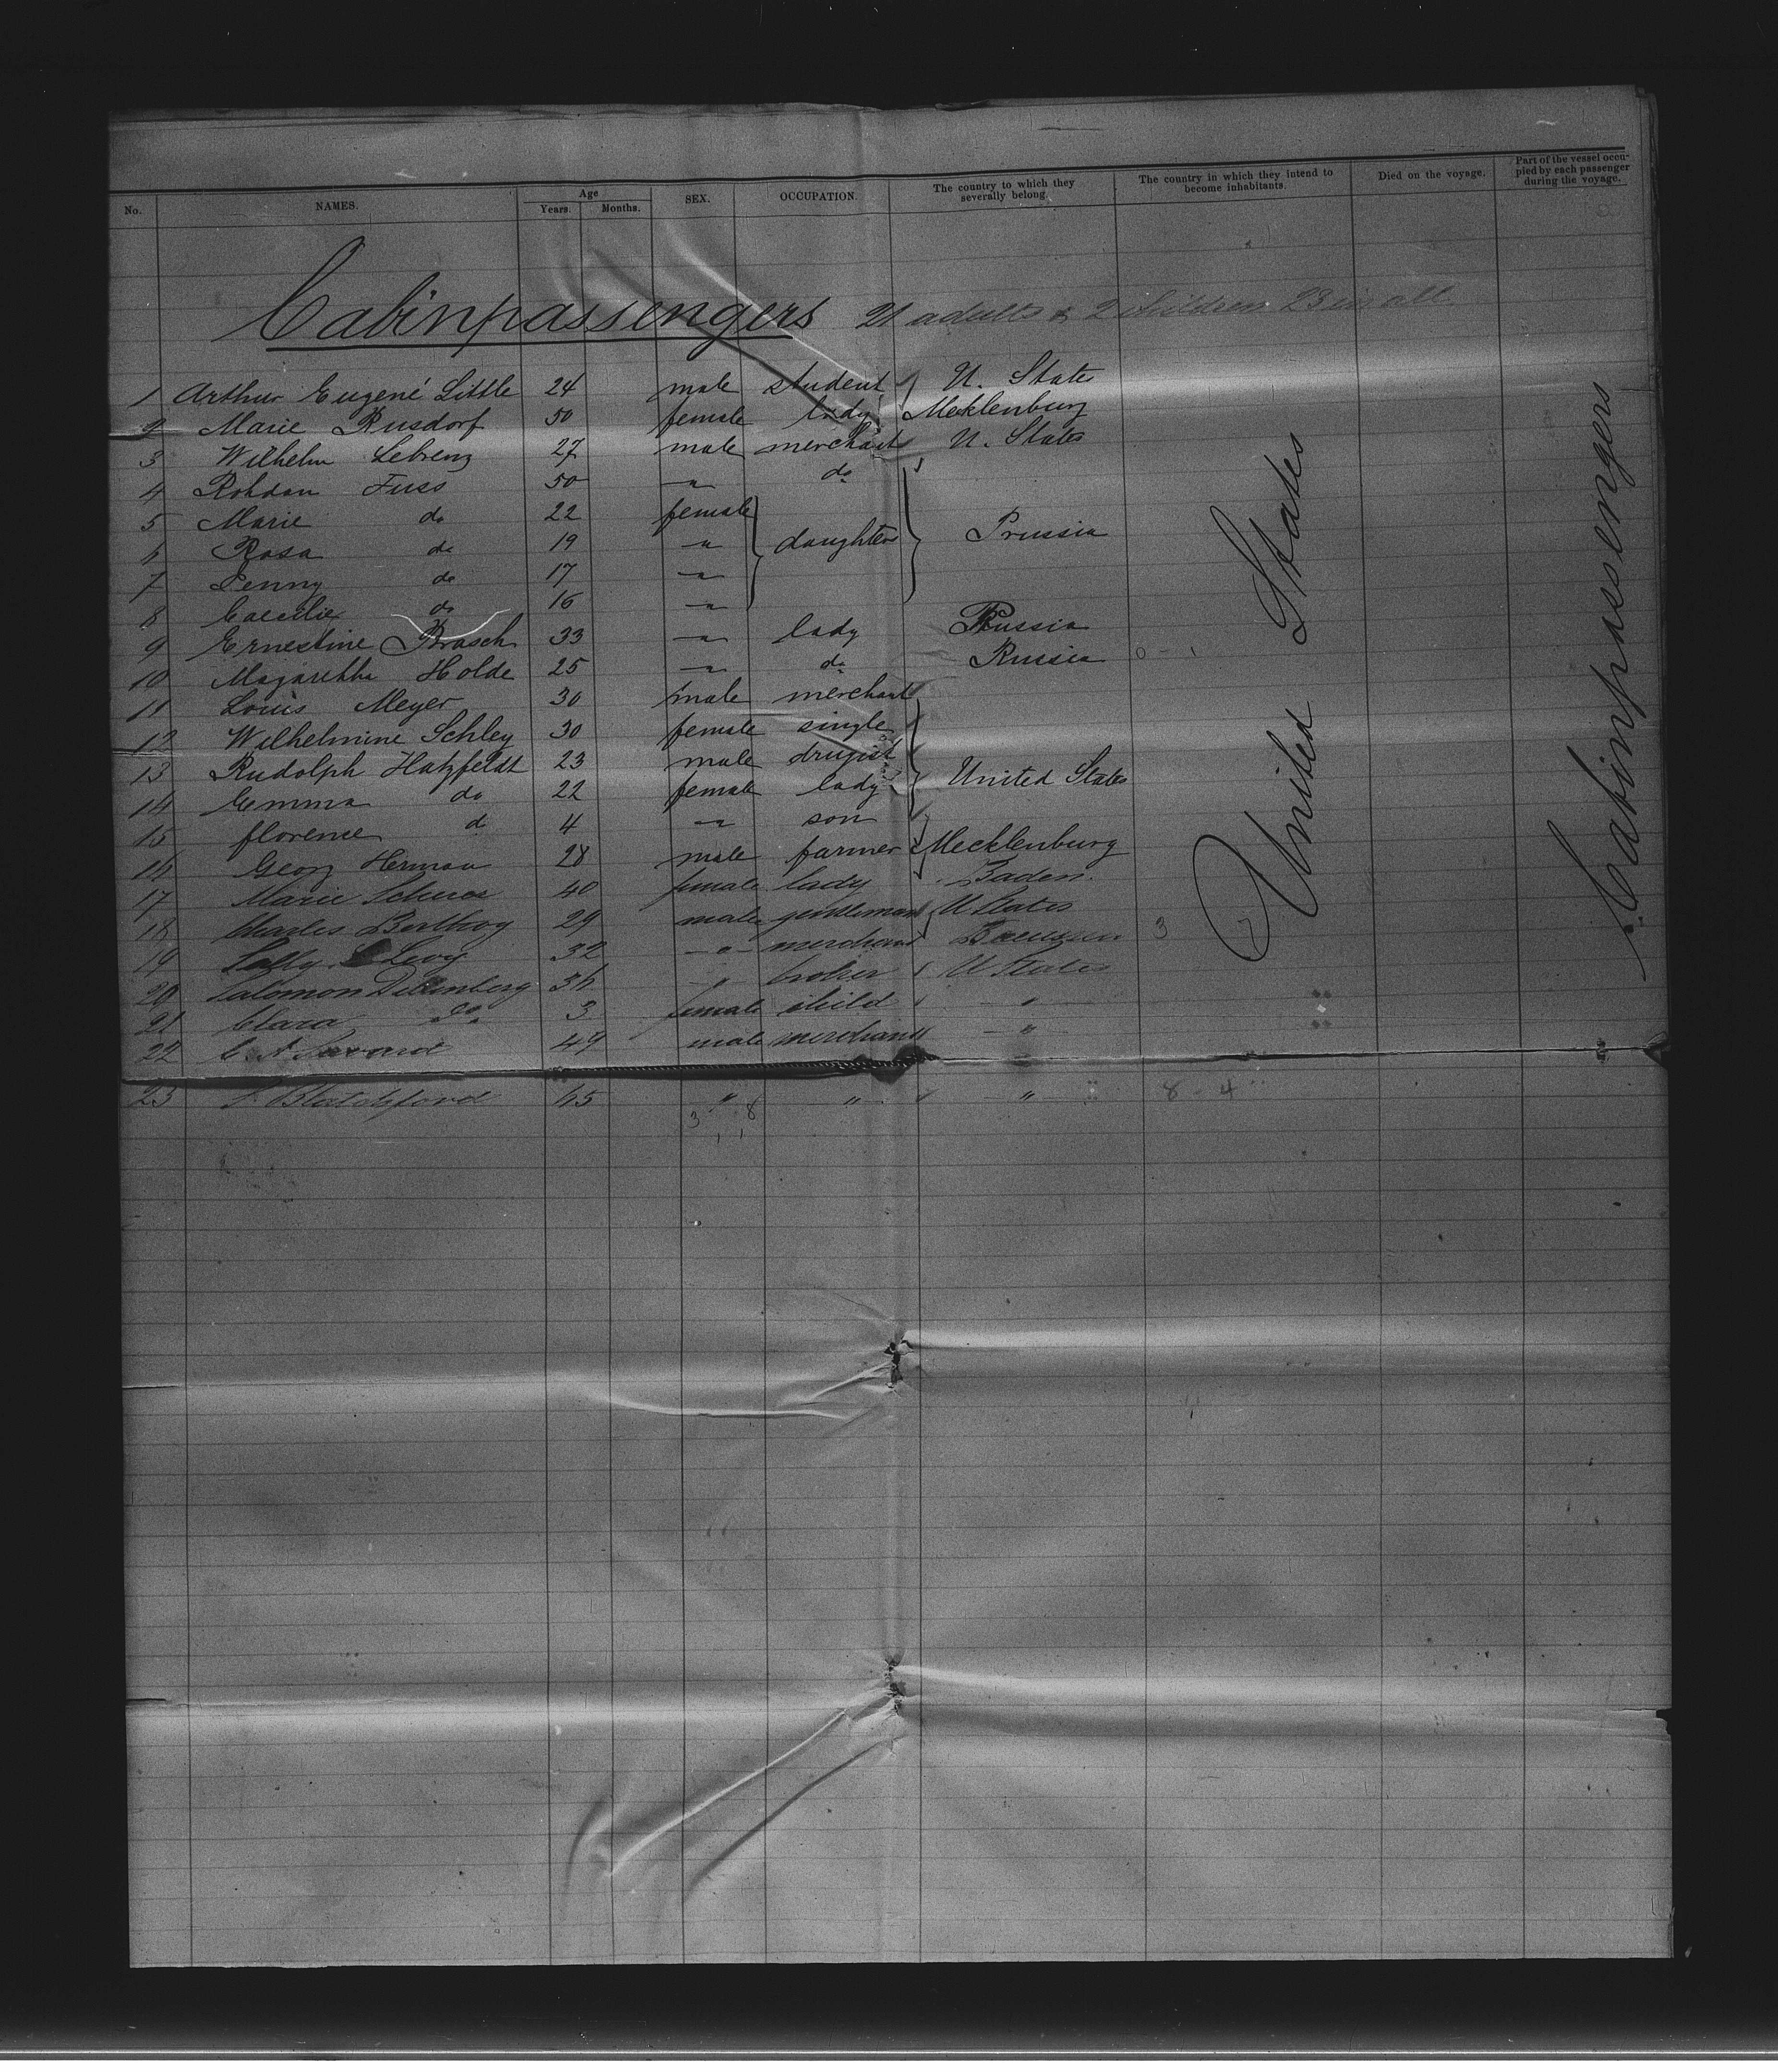 No. NAMES. Age Years. Months. SEX. OCCUPATION. The country to which they severally belong. The country in which they intend to become inhabitants. Died on the voyage. Part of the vessel occupied by each passenger during the voyage.
Cabinpassengers 21 adults & 2 children 23 in all
1 Arthur Eugené Little 24 male student U. States
2 Marie Rusdorf 50 female lady Meklenburg
3 Wilhelm Lebrenz 27 male merchant U. States
4 Rohdan Fuss 50 " do
5 Marie do 22 female
6 Rosa do 19 " daughters Prussia
7 Jenny do 17 "
8 Caecilie do 16 "
9 Ernestine Brasch 33 " lady Prussia
10 Magaretha Holde 25 " do Russia 0 - 1
11 Louis Meyer 30 male merchant
12 Wilhelmine Schley 30 female single
13 Rudolph Hatzfeldt 23 male drugist
14 Emma do 22 female lady United States
15 florence d 4 " son
16 Georg Herman 28 male farmer Mecklenburg
17 Marie 40 female lady Baden.
18 Charles Berthog 29 male gentleman U States
19 Sally Levy 32 " merchant 3
20 Salomon 36 " broker U States
21 Clara do. 3 female child "
22 C. A. 49 male merchant "
23 Blatchford 65 " " " 8 - 4
3 8
1 1
United States
Cabinpassengers